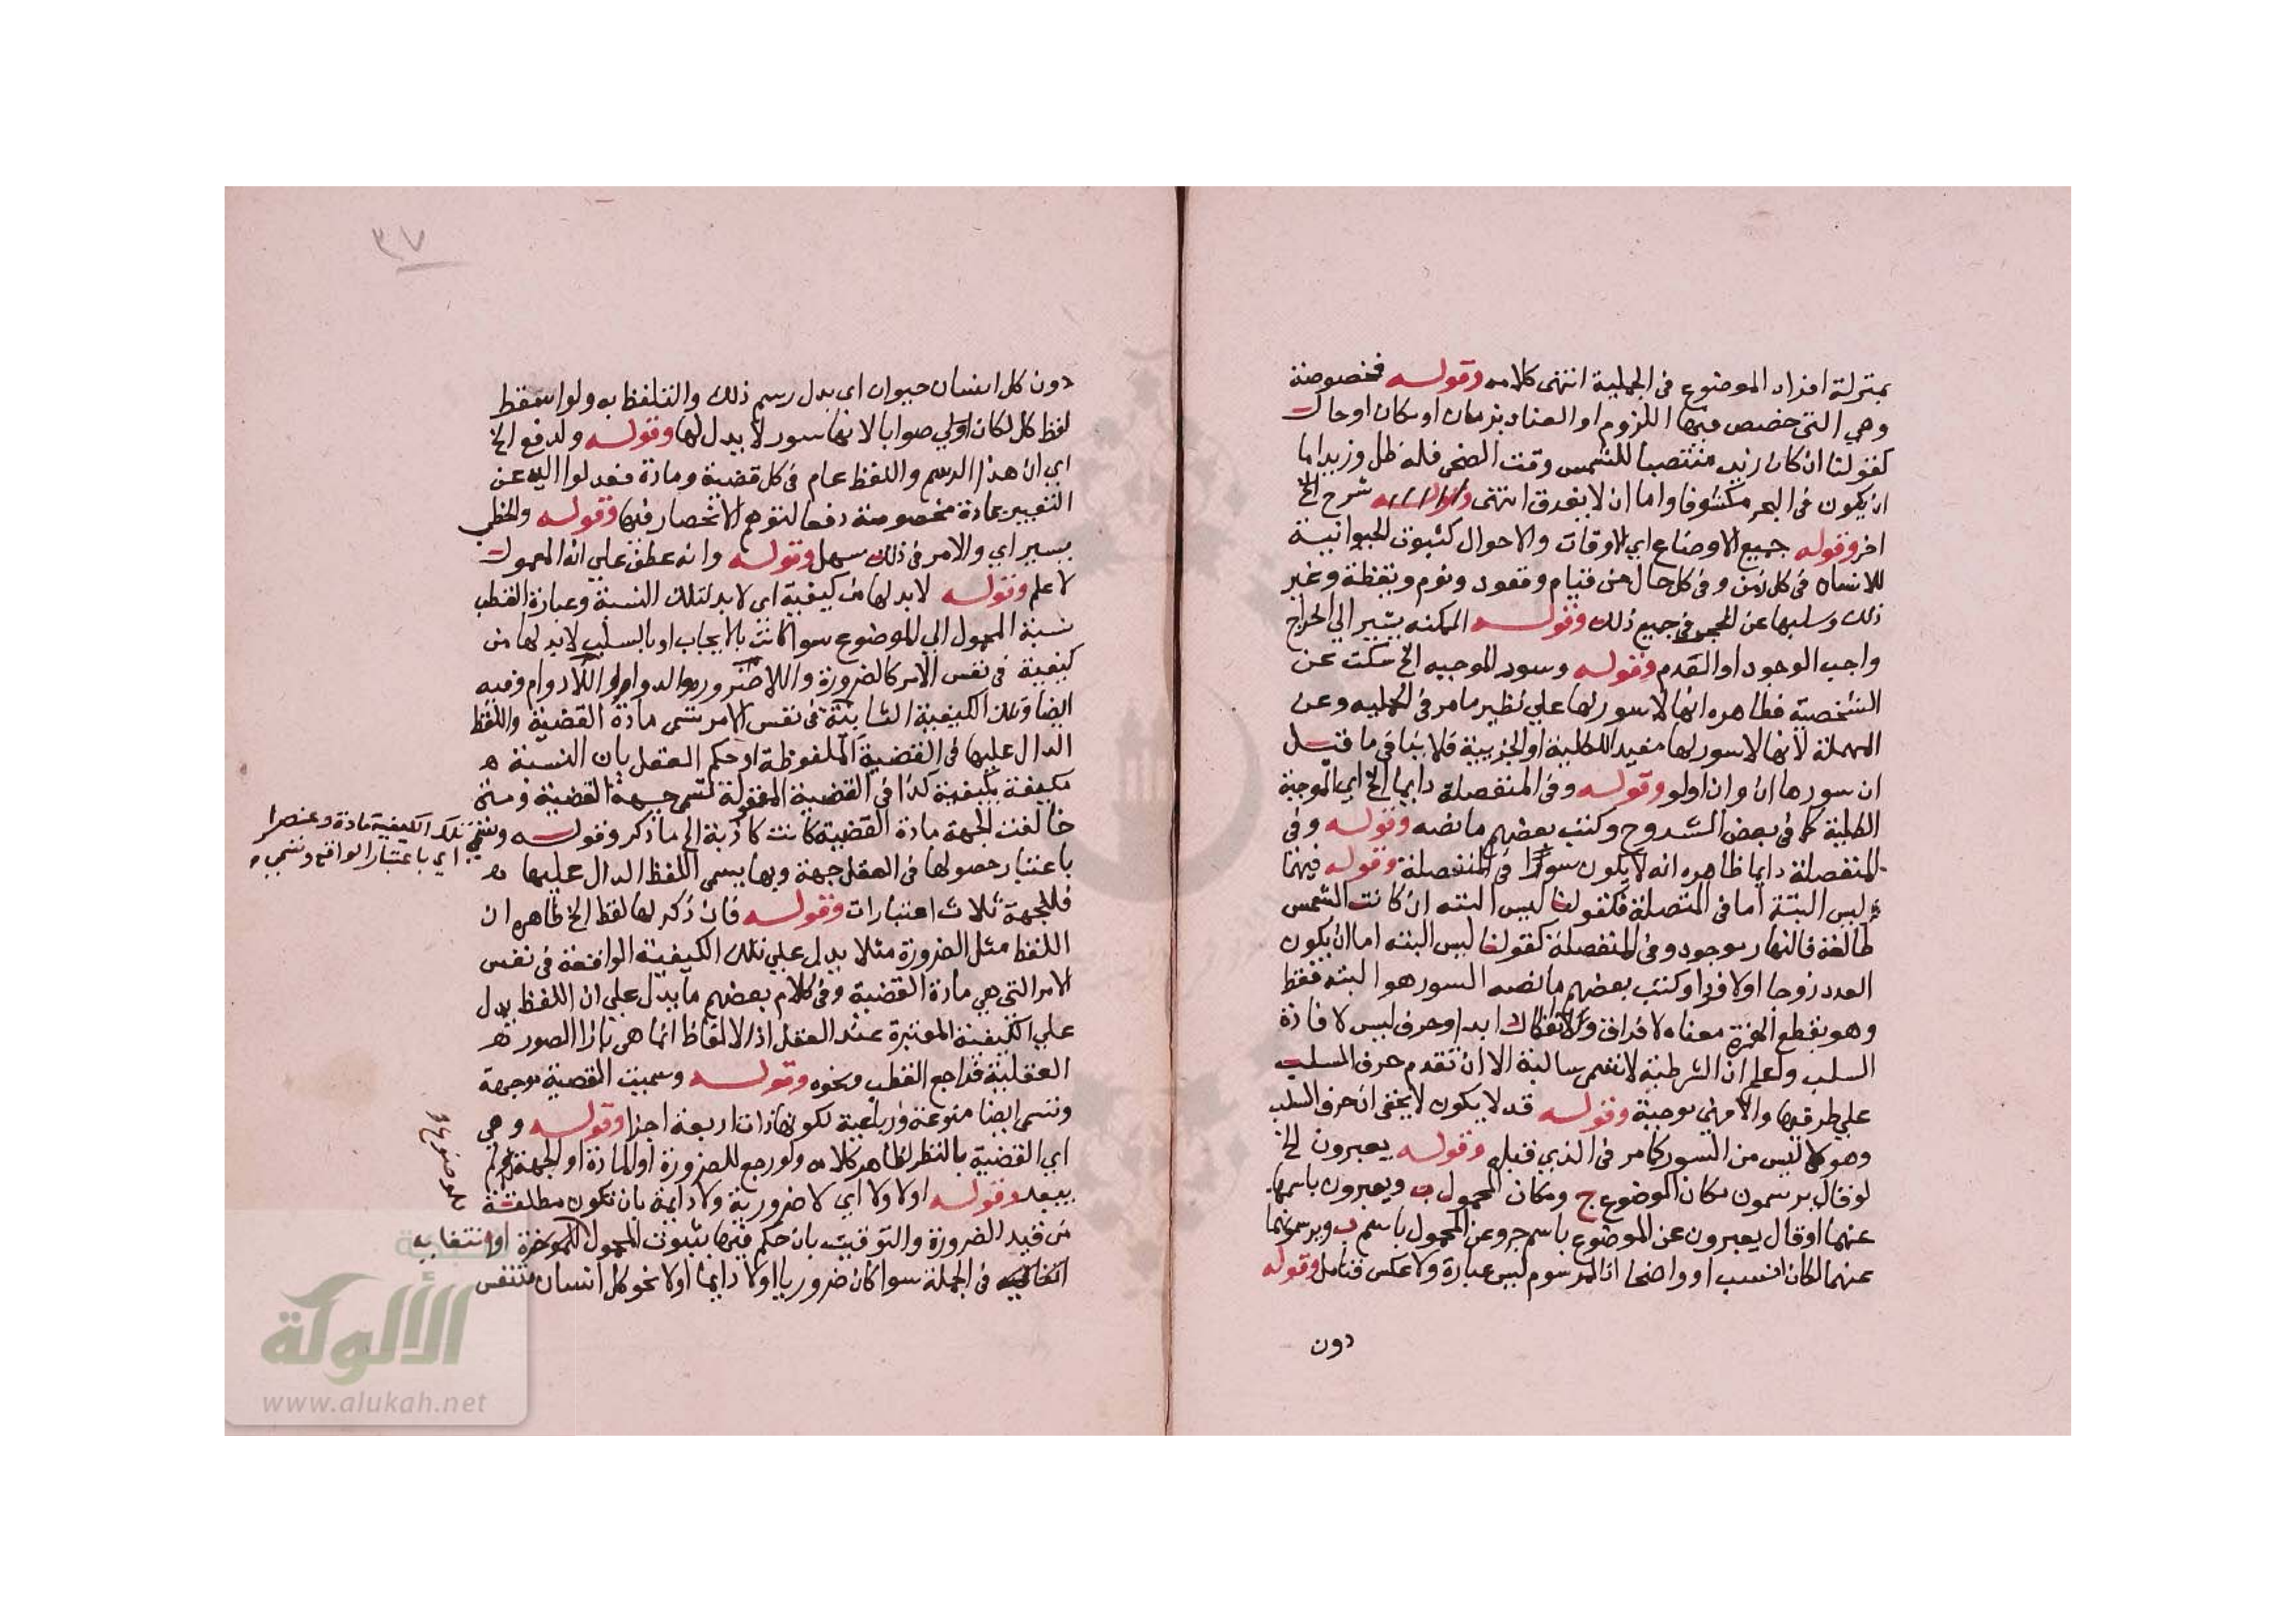 بمنزلة افراد الموضوع في الحملية انتهى كلامه وقوله فمخصوصة
وهي التي خصص فيها اللزوم او العناد بزمان او مكان او حال
كقولنا ان كان زيد منتصبا للشمس وقت الضحى فله ظل وزيد اما
ان يكون في البحر مكشوفا واما ان لا يغرق انتهى شرح الخ
اخر وقوله جميع الاوضاع اي الاوقات والاحوال كثبوت الحيوانية
للانسان في كل زمن وفي كل حال من قيام وقعود ونوم ويقظة وغير
ذلك وسلبها عن الحجر في جميع ذلك وقوله الممكنه يشير الى اخراج
واجب الوجود او القدم وقوله وسور الموجبه الخ سكت عن
الشخصية فظاهره انها لا سور لها علي نظير ما مر في الحمليه وعن
المهملة لانها لا سور لها مفيد الكلية او الجزيية فلا ينافي ما قيل
ان سورها ان وان اولو وقوله وفي المنفصلة دايما الخ اي الموجبة
الكلية كما في بعض الشروح وكتب بعضهم ما نصه وقوله وفي
المنفصلة دايما ظاهره انه لا يكون سورا في المتصلة وقوله فيهما
ليس البتة اما في المتصلة فكقولنا ليس البته ان كانت الشمس
طالعة فالنهار موجود وفي المنفصلة كقولنا ليس البته اما ان يكون
العدد زوجا او لا فردا وكتب بعضهم ما نصه السور هو البته فقط
وهو بقطع الهمزة معناه لا فراق ولا انفكاك ابدا وحرف ليس لافادة
السلب واعلم ان الشرطية لا تسمى سالبة الا ان تقدم حرف السلب
علي طرفيها والا فهي موجبة وقوله قد لا يكون لا يخفى ان حرف السلب
وهو لا ليس من السور كما مر في الذي قبله وقوله يعبرون الخ
لو قال يرسمون مكان الموضوع ج ومكان المحمول ب ويعبرون باسمها
عنهما او قال يعبرون عن الموضوع باسم ج وعن المحمول باسم ب ويرسمونهما
عنهما لكان انسب او واضحا اذ المرسوم ليس عبارة ولا عكس فتامل وقوله
دون
٣٧
دون كل انسان حيوان اي بدل رسم ذلك والتلفظ به ولو اسقط
لفظ كل لكان اولي صوابا لانها سور لا بدل لها وقوله ولدفع الخ
اي ان هذا الرسم واللفظ عام في كل قضية ومادة فعدلوا اليه عن
التعبير بمادة مخصوصة دفعا لتوهم الانحصار فيها وقوله والخطب
يسير اي والامر في ذلك سهل وقوله وانه عطف علي انه المعمول
لاعلم وقوله لا بد لها من كيفية اي لا بد لتلك النسبة وعبارة القطب
نسبة المحمول الي الموضوع سوا كانت بالايجاب او بالسلب لا بد لها من
كيفية في نفس الامر كالضرورة واللاضرورة والدوام واللا دوام وفيه
ايضا وتلك الكيفية الثابتة في نفس الامر تسمى مادة القضية واللفظ
الدال عليها في القضية الملفوظة او حكم العقل بان النسبة
مكيفة بكيفية كذا في القضية المعقولة تسمى جهة القضية ومتى
خالفت الجهة مادة القضية كانت كاذبة الي ما ذكر وقوله وتسمى
تلك الكيفية مادة وعنصرا
اي باعتبار الواقع وتسمى
باعتبار حصولها في العقل جهة وبها يسمى اللفظ الدال عليها
فللجهة ثلاث اعتبارات وقوله فان ذكر لها لفظ الخ ظاهره ان
اللفظ مثل الضرورة مثلا يدل علي تلك الكيفية الواقعة في نفس
الامر التي هي مادة القضية وفي كلام بعضهم ما يدل علي ان اللفظ يدل
علي الكيفية المعتبرة عند العقل اذ الالفاظ انما هي بازا الصور
العقلية فراجع القطب ونحوه وقوله وسميت القضية موجهة
وتسمى ايضا منوعة ورباعية لكونها ذات اربعة اجزا وقوله وهي
اي القضية بالنظر لظاهر كلامه ولو رجع للضرورة او المادة او الجهة لم
يبعد وقوله او لا ولا اي لا ضرورية ولا دايمة بان تكون مطلقة
من قيد الضرورة والتوقيت بان حكم فيها بثبوت المحمول للموضوع او انتفايه
في الجملة سوا كان ضروريا او لا دايما او لا نحو كل انسان متنفس
الألوكة
www.alukah.net